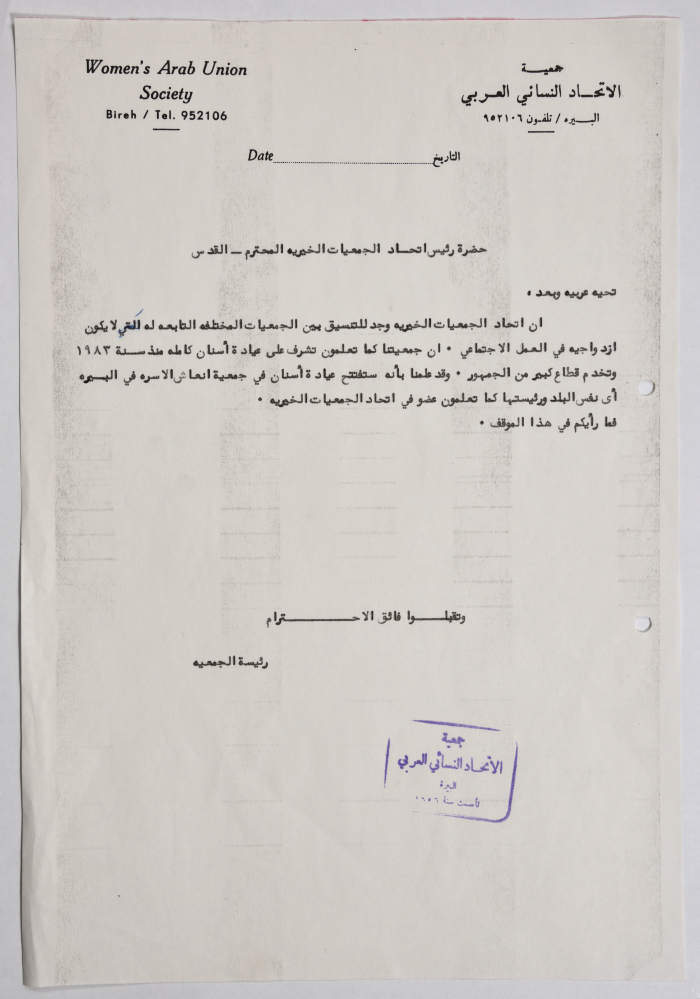 Women's Arab Union
Society
Bireh / Tel. 952106
جمعيـــة
الاتحــاد النسائي العـربي
البـــيره / تلفـون ٩٥٢١٠٦
Date التاريخ
حضرة رئيس اتحـاد الجمعيات الخيريه المحترم ــ القدس
تحيه عربيه وبعد ٠
ان اتحاد الجمعيات الخيريه وجد للتنسيق بين الجمعيات المختلفه التابعه له لكي لا يكون
ازدواجيه في العمل الاجتماعي ٠ ان جمعيتنا كما تعلمون تشرف على عيادة أسنان كامله منذ سـنة ١٩٨٣
وتخدم قطاع كبير من الجمهور ٠ وقد علمنا بأنه ستفتتح عيادة أسنان في جمعية انعاش الاسره في البـيره
أى نفس البلد ورئيستها كما تعلمون عضو في اتحاد الجمعيات الخيريه ٠
فما رأيكم في هذا الموقف ٠
وتقبلـــــوا فائق الاحــــــــــترام
رئيسة الجمعيه
جمعية
الاتحاد النسائي العربي
البيرة
تأسست سنة